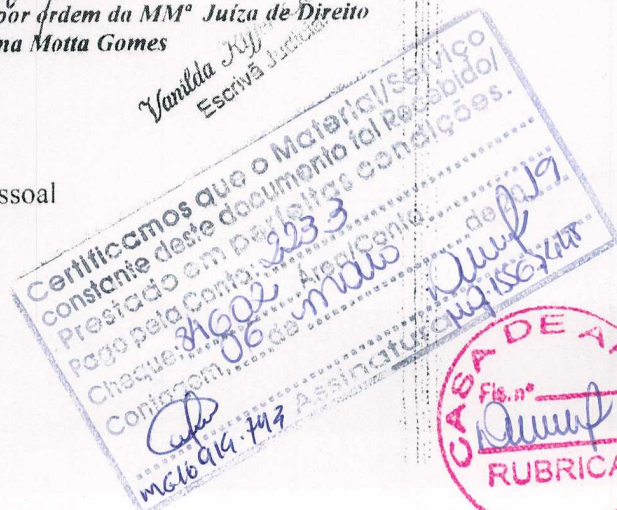 por ordem da MMª Juíza de Direito
na Motta Gomes
Vanilda
Escrivã Judicial
ssoal
Certificamos que o Material/Serviço
constante deste documento foi Recebido/
Prestado em perfeitas condições.
Pago pela Conta: 2233
Cheque: Área/Conta:
Contagem, 06 de maio de 2019
Assinatura
CASA DE A
Fls. nº
RUBRICA